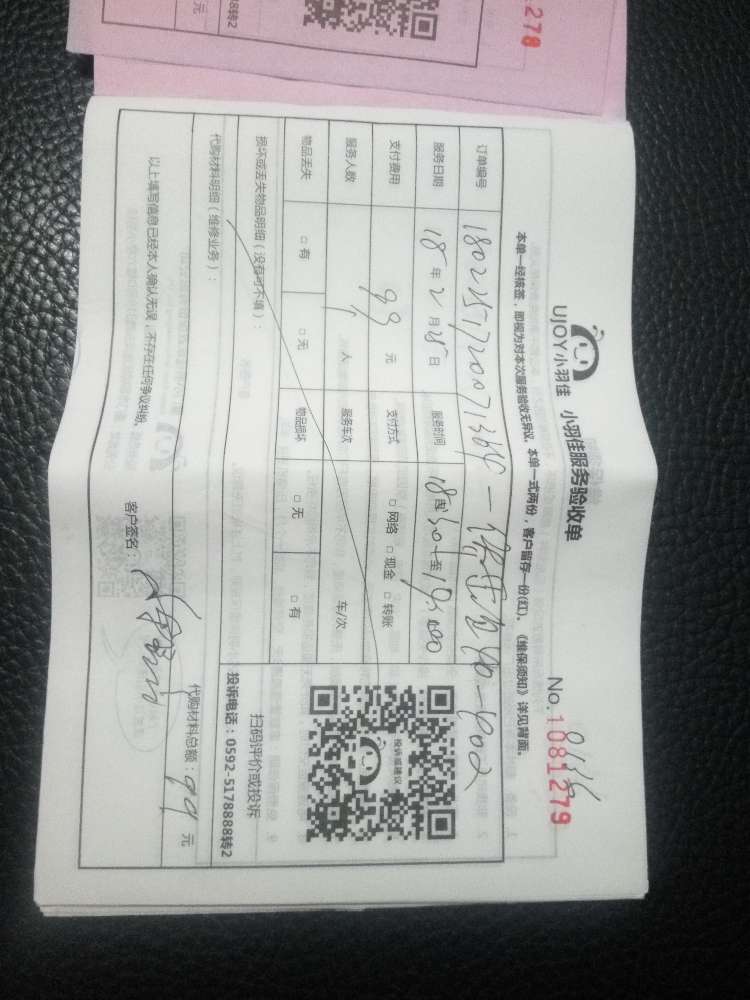 UJOY小羽佳 小羽佳服务验收单
No.1081279
本单一经核签，即视为对本次服务验收无异议，本单一式两份，客户留存一份(红)。《维保须知》详见背面。
订单编号
服务日期 18年2月25日 服务时间
支付费用 99元 支付方式 □网络 □现金 □转账
服务人数 1人 服务车次 车/次
物品丢失 □有 □无 物品损坏 □无 □有
损坏或丢失物品明细（没有可不填）：
投诉或建议
扫码评价或投诉
投诉电话：0592-5178888转2
代购材料明细（维修业务）：
代购材料总额：99元
以上填写信息已经本人确认无误，不存在任何争议纠纷。
客户签名：
1278
8转2
元